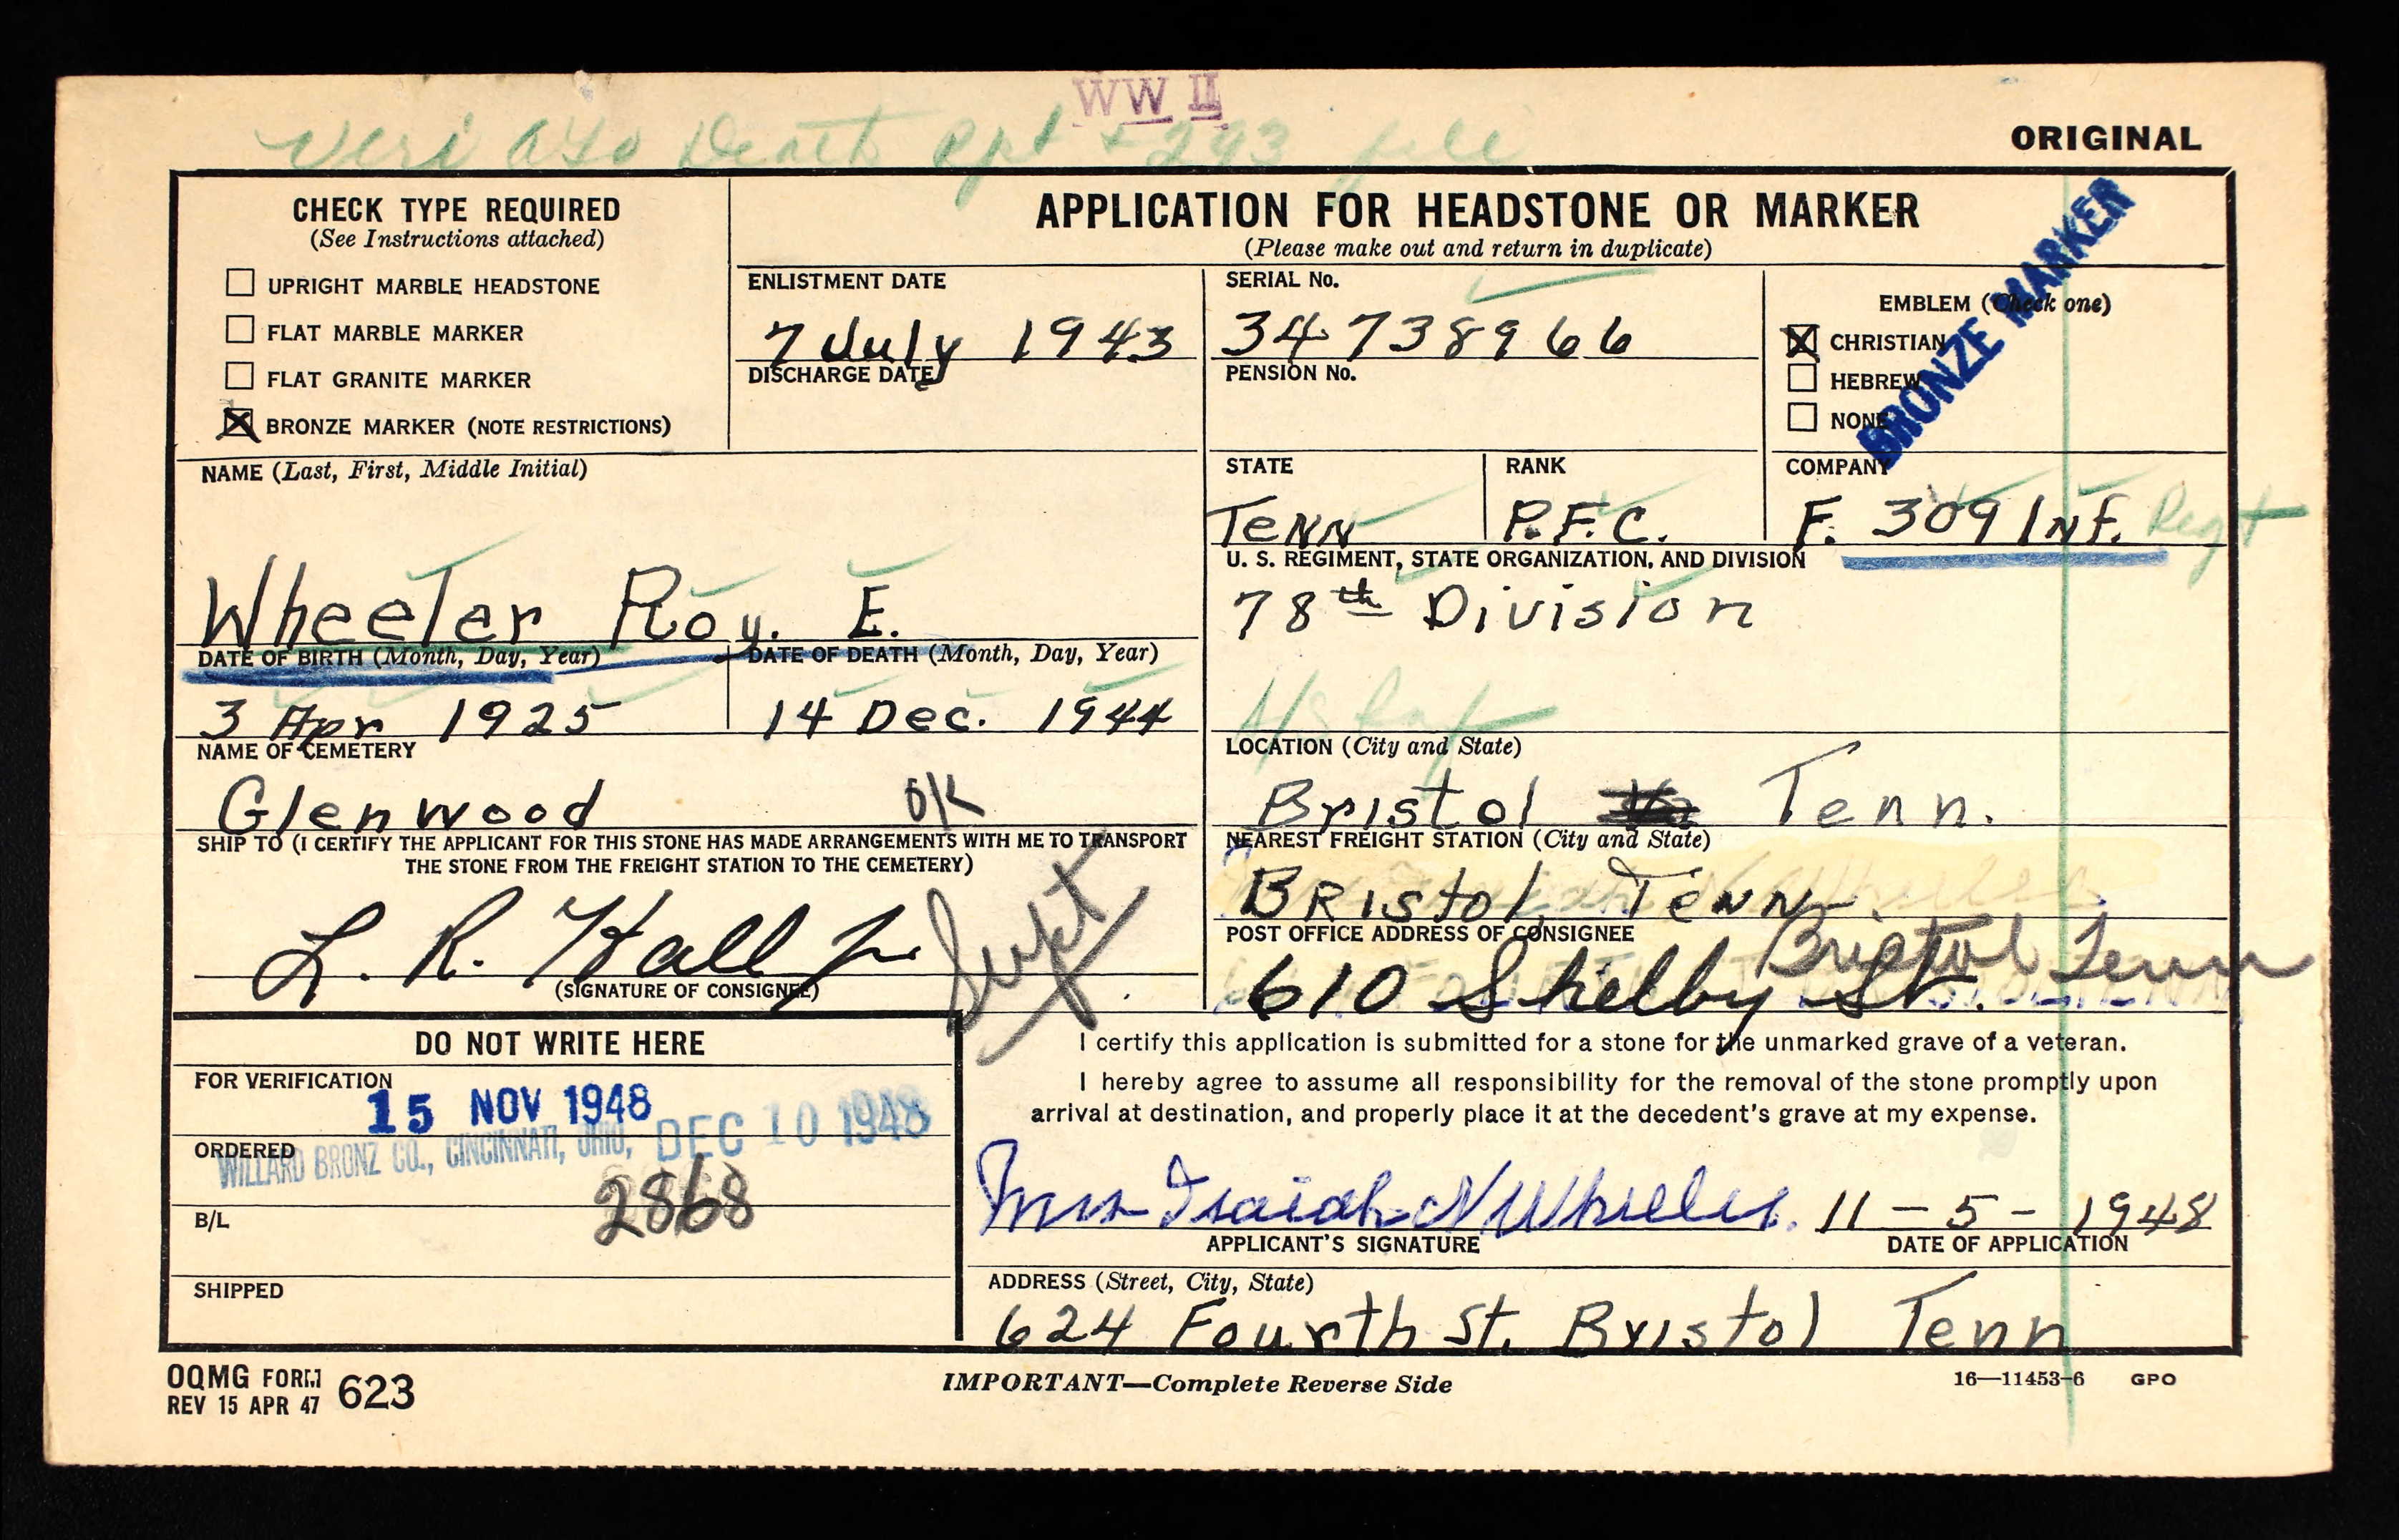 WW II
Veri AGO Death Rpt + 293 file
ORIGINAL
CHECK TYPE REQUIRED
(See Instructions attached)
UPRIGHT MARBLE HEADSTONE
FLAT MARBLE MARKER
FLAT GRANITE MARKER
BRONZE MARKER (NOTE RESTRICTIONS)
APPLICATION FOR HEADSTONE OR MARKER
(Please make out and return in duplicate)
ENLISTMENT DATE
7 July 1943
DISCHARGE DATE
SERIAL No.
34738966
PENSION No.
EMBLEM (Check one)
CHRISTIAN
HEBREW
NONE
BRONZE MARKER
NAME (Last, First, Middle Initial)
Wheeler Roy. E.
STATE
TENN
RANK
P.F.C.
COMPANY
F. 309 INF. Regt
U. S. REGIMENT, STATE ORGANIZATION, AND DIVISION
78th Division
DATE OF BIRTH (Month, Day, Year)
3 Apr 1925
DATE OF DEATH (Month, Day, Year)
14 Dec. 1944
NAME OF CEMETERY
Glenwood OK
LOCATION (City and State)
Bristol Tenn.
SHIP TO (I CERTIFY THE APPLICANT FOR THIS STONE HAS MADE ARRANGEMENTS WITH ME TO TRANSPORT
THE STONE FROM THE FREIGHT STATION TO THE CEMETERY)
L. R. Hall Jr Supt
(SIGNATURE OF CONSIGNEE)
NEAREST FREIGHT STATION (City and State)
Bristol, Tenn.
POST OFFICE ADDRESS OF CONSIGNEE
610 Shelby St. Bristol Tenn
DO NOT WRITE HERE
FOR VERIFICATION
15 NOV 1948
ORDERED
WILLARD BRONZ CO., CINCINNATI, OHIO, DEC 10 1948
2868
B/L
SHIPPED
I certify this application is submitted for a stone for the unmarked grave of a veteran.
I hereby agree to assume all responsibility for the removal of the stone promptly upon
arrival at destination, and properly place it at the decedent's grave at my expense.
Mrs Isaiah N Wheeler. 11-5-1948
APPLICANT'S SIGNATURE
DATE OF APPLICATION
ADDRESS (Street, City, State)
624 Fourth St. Bristol Tenn
OQMG FORM 623
REV 15 APR 47
IMPORTANT—Complete Reverse Side
16—11453-6 GPO